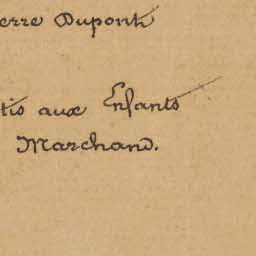 erre Dupont
tis aux Enfants
Marchand.